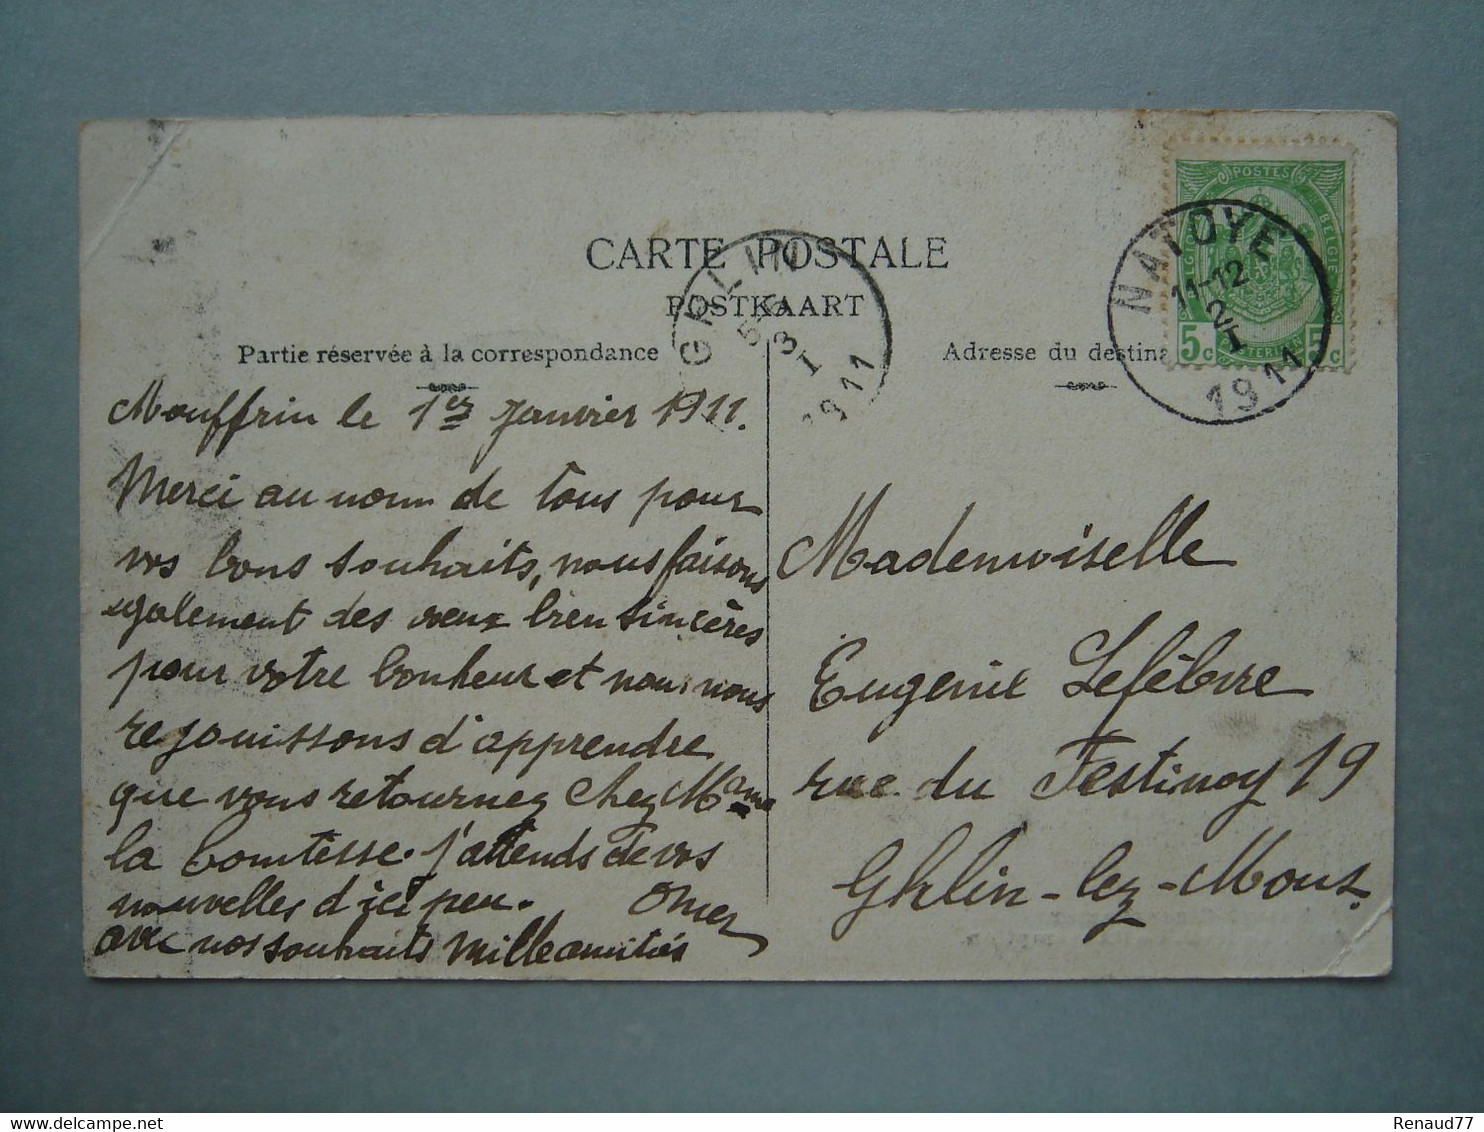 CARTE POSTALE
POSTKAART
Partie réservée à la correspondance
Adresse du destina
POSTES
BELGIE
5c 5c
NATOYE
11-12
2
I
1911
GHLIN
5-
3
I
1911
Mouffrin le 1er Janvier 1911.
Merci au nom de tous pour
vos bons souhaits, nous faisons
egalement des vœux bien sincères
pour votre bonheur et nous nous
rejouissons d'apprendre
que vous retournez chez Mame
la Comtesse. J'attends de vos
nouvelles d'ici peu. Omer
avec nos souhaits mille amitiés
Mademoiselle
Eugenie Lefèbvre
rue du Festinoy 19
Ghlin-lez-Mons.
Renaud77